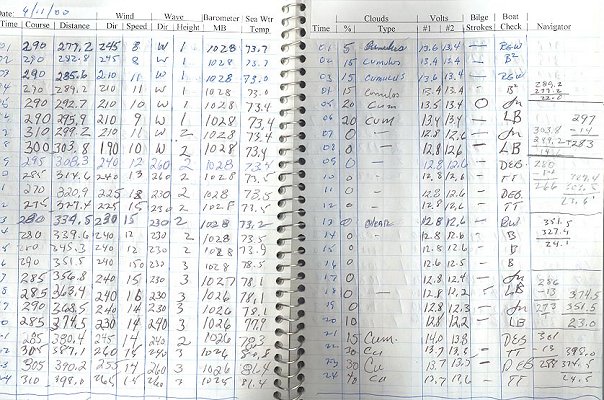 Date: 4/1/00
Wind Wave Barometer Sea Wtr
Time Course Distance Dir Speed Dir Height MB Temp
290 277.2 245 8 W 1 1028 73.7
280 282.8 245 8 W 1 1028 73.7
290 285.6 210 11 W 1 1028 73.7
290 289.2 210 11 W 1 1028 73.0
290 292.7 210 10 W 1 1028 73.4
290 295.9 210 9 W 1 1028 73.4
310 299.2 210 11 W 2 1028 73.4
300 303.8 190 10 W 2 1028 73.4
295 308.3 240 12 260 2 1028 73.4
285 314.6 240 13 260 2 1028 73.5
270 320.9 225 18 230 2 1028 73.5
275 327.4 225 15 230 2 1028 73.5
280 334.5 230 15 230 2 1028 73.2
280 339.6 240 12 230 2 1028 73.5
345.3 240 12 230 2 1028 73.9
290 351.5 240 230 2 1028 78.5
285 356.8 240 15 230 3 1027 78.1
285 363.4 240 16 230 3 1026 78.1
290 368.5 240 14 230 3 1026 78.1
285 374.5 230 14 240 3 1026 77.9
285 380.4 245 14 240 2 1026 78.3
305 387.1 260 15 240 3 1026
305 390.2 255 14 260 3 1025 81.4
310 398.0 265 14 260 3 1025 81.4
Clouds Volts Bilge Boat
Time % Type #1 #2 Strokes Check Navigator
01 5 Cumulus 13.6 13.4 — RGW
02 15 Cumulus 13.4 13.4 —
03 15 Cumulus 13.6 13.4 — RGW
04 15 Cumulus 13.4 13.4 —
05 20 Cum 13.5 13.4 O
06 20 Cum 13.4 13.4 — LB
07 0 — 12.8 12.6 —
08 0 — 12.8 12.6 — LB
09 0 — 12.8 12.6 — DEG
10 0 — 12.8 12.6 — TT
11 0 — 12.8 12.6 — DEG
12 0 — 12.8 12.6 — TT
13 0 Clear 12.8 12.6 — RW
14 0 12.8 12.6 — B
15 0 12.6 12.6 — B
16 0 12.6 12.5 — B
17 0 12.8 12.4 —
18 0 — 12.8 12.2 — LB
19 10 12.8 12.3 —
20 10 12.8 12.2 — LB
21 15 Cum. 14.0 13.8 DEG
22 30 Cu 13.7 13.6 — TT
23 30 Cu 13.7 13.5 — DEG
24 40 Cu 13.7 13.6 — TT
289.2
297
303.8 -14
283
351.5
327.4
24.1
286
-13 374.5
273 351.5
23.0
301
-13 398.0
288 374.5
24.5